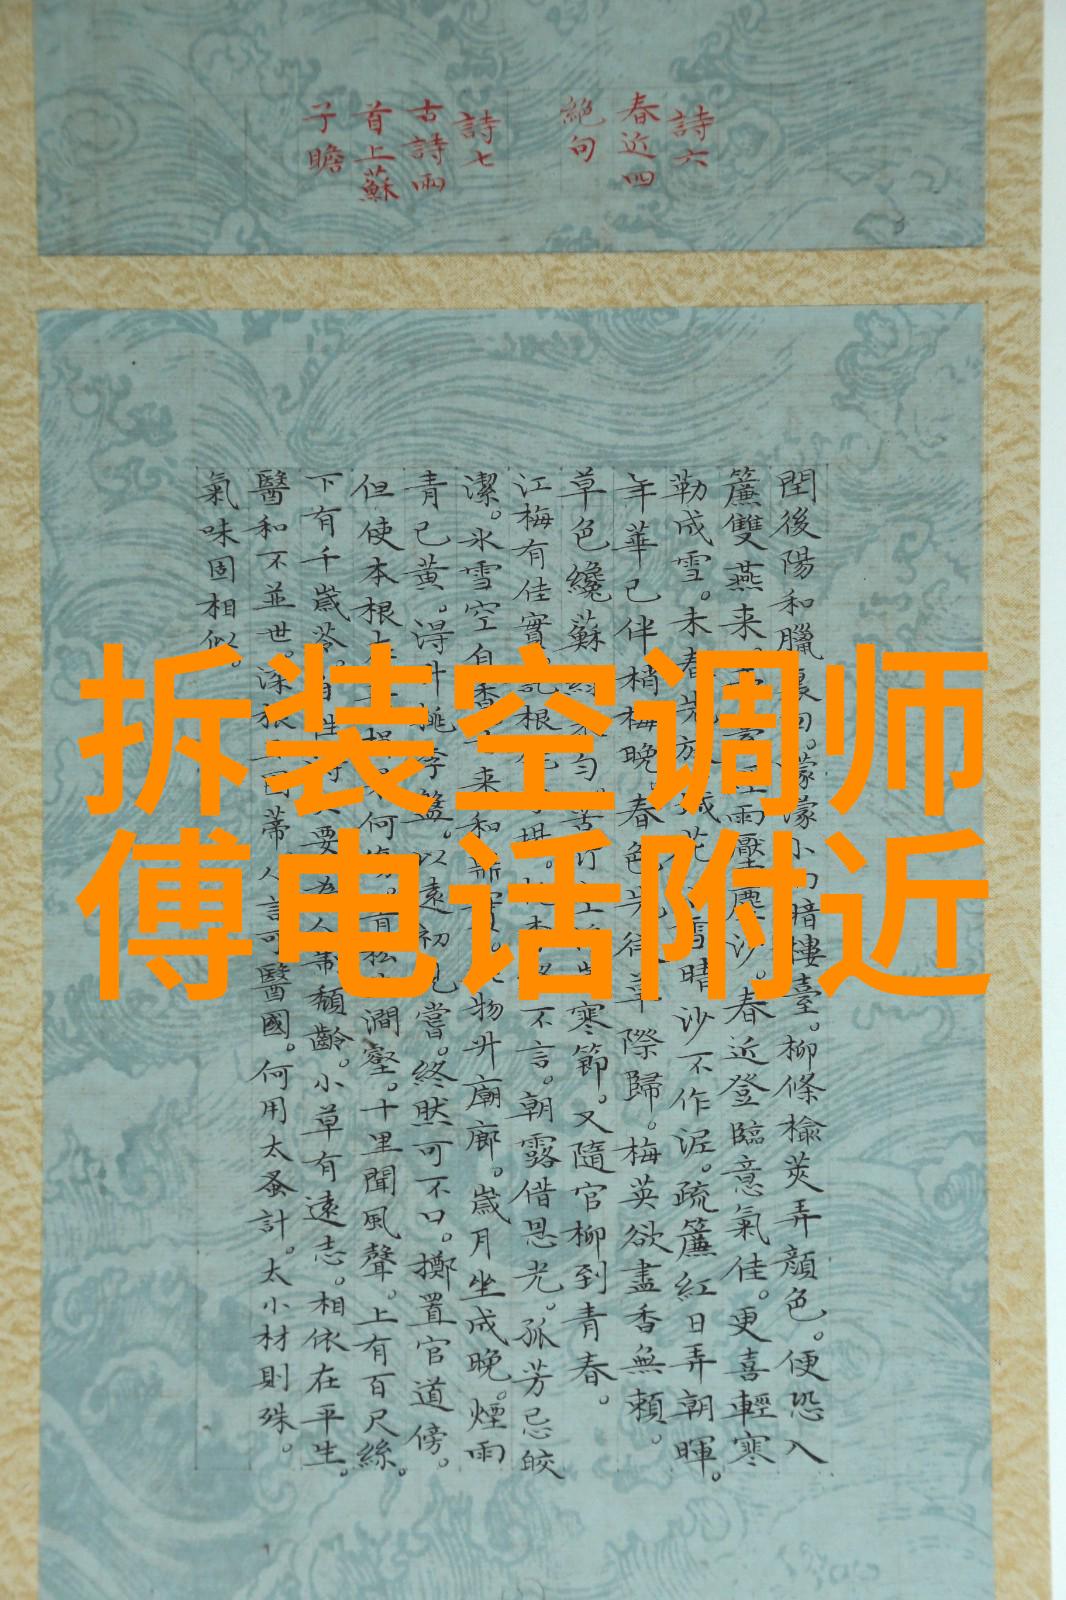 詩六
春近四
絶句
詩七
古詩兩
首上蘇
子瞻
閏後陽和臘裏回。濛濛小雨暗樓臺。柳條榆莢弄顏色。便恐入
簾雙燕来。雨壓塵沙。春近登臨意氣佳。更喜輕寒
勒成雪。未春先放城花。雪晴沙不作泥。疏簾紅日弄朝暉。
年華已伴梢梅晚。春色先從草際歸。梅英欲盡香無賴。
草色纔蘇綠勻。苦竹寒節。又隨官柳到青春。
江梅有佳實。託根不言。朝露借恩光。孤芳忌皎
潔。冰雪空自来和物升廟廊。歲月坐成晚。煙雨
青已黃。得升桃李盤。以遠初見嘗。終然可不口。擲置官道傍。
但使本根何澗壑。十里聞風聲。上有百尺絲。
下有千歲苓。自性要制頹齡。小草有遠志。相依在平生。
醫和不並世。深蒂人言可醫國。何用太蚤計。大小材則殊。
氣味固相似。
拆装空调师
傅电话附近